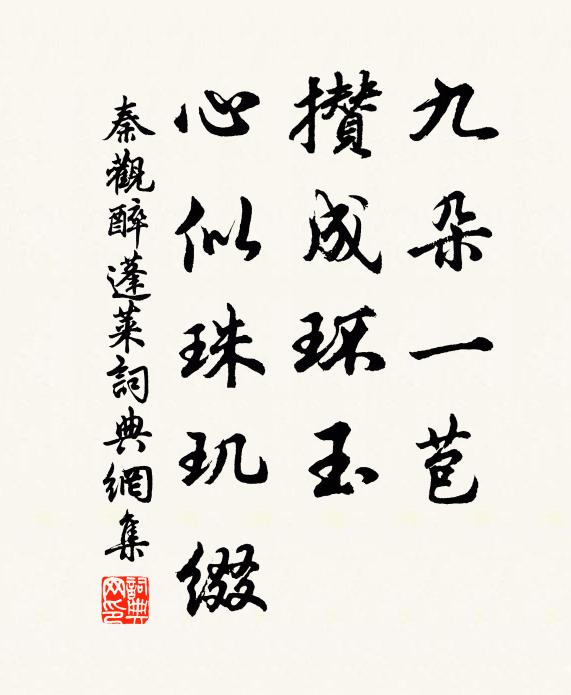 九朵一苞
攢成环玉
心似珠玑綴
秦觀醉蓬萊詞典網集
詞典
网印